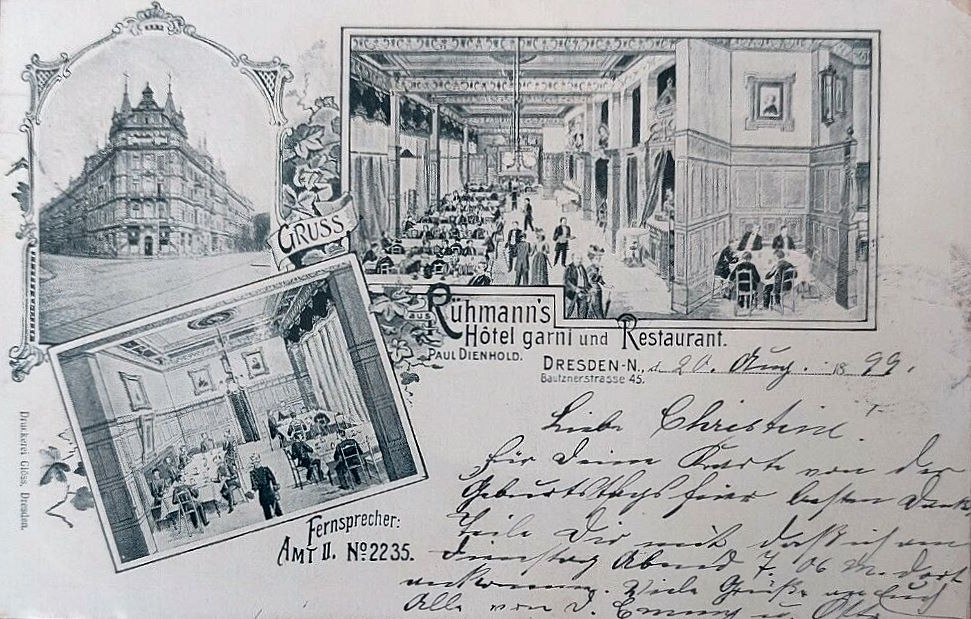 GRUSS
aus Rühmann's
Hôtel garni und Restaurant.
PAUL DIENHOLD.
DRESDEN-N., d. 20. Aug. 1899.
Bautznerstrasse 45.
Liebe Christine.
für Deine Karte von der
Geburtstagsfeier besten Dank
teile Dir mit, daß ich am
Dienstag Abend 7.06 M. dort
ankomme. Viele Grüße an Euch
Alle von D. Emmy u. Otto
Fernsprecher:
AMT II. No 2235.
Druckerei Glöss, Dresden.